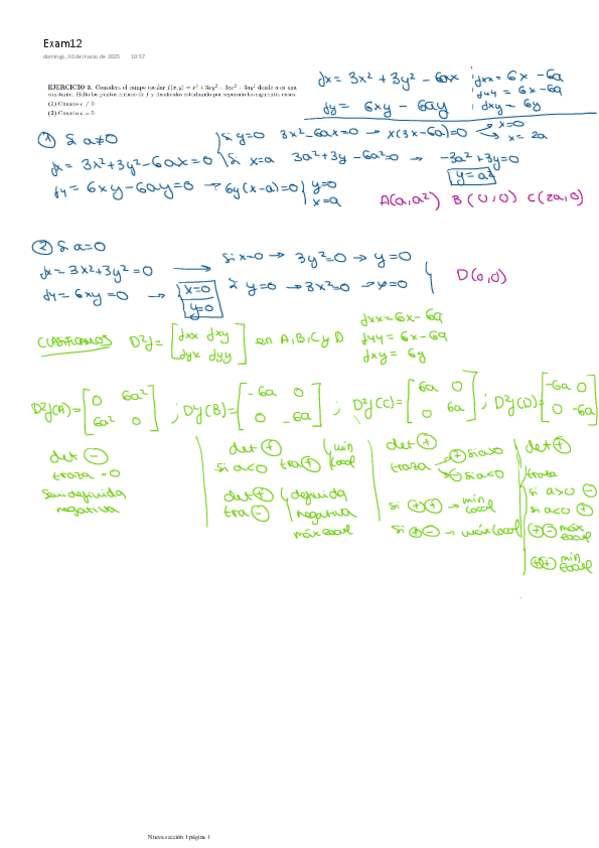 Exam12
domingo, 30 de marzo de 2025 18:57
EJERCICIO 3. Considera el campo escalar f(x, y) = x³ + 3xy² − 3ax² − 3ay² donde a es una
constante. Halla los puntos críticos de f y clasifícalos estudiando por separado los siguientes casos:
(1) Cuando a ≠ 0
(2) Cuando a = 0
fx = 3x² + 3y² - 6ax
fxx = 6x - 6a
fyy = 6x - 6a
fy = 6xy - 6ay
fxy = 6y
① Si a≠0
Si y=0 3x²-6ax=0 → x(3x-6a)=0 x=0
x=2a
fx = 3x²+3y²-6ax=0
Si x=a 3a²+3y-6a²=0 → -3a²+3y=0
y=a²
fy = 6xy-6ay=0 → 6y(x-a)=0 y=0
x=a
A(a,a²) B(0,0) C(2a,0)
② Si a=0
fx = 3x²+3y²=0 → Si x=0 → 3y²=0 → y=0
fy = 6xy=0 → x=0
y=0
y=0 → 3x²=0 → x=0
D(0,0)
CLASIFICAMOS D²f= [fxx fxy
fyx fyy] en A,B,C y D
fxx=6x-6a
fyy=6x-6a
fxy=6y
D²f(A)= [0 6a²
6a² 0] ; D²f(B)= [-6a 0
0 -6a] ; D²f(C)= [6a 0
0 6a] ; D²f(D)= [-6a 0
0 -6a]
det ⊖
traza=0
Semidefinida
negativa
det ⊕
si a<0 tra ⊕ min
local
det ⊕
tra ⊖
definida
negativa
máx local
det ⊕
traza ⊕ si a>0
⊖ si a<0
si ⊕⊕ → min
local
si ⊕⊖ → máx local
det ⊕
traza
si a>0 ⊖
si a<0 ⊕
⊕⊖ máx
local
⊕⊕ min
local
Nueva sección 1 página 1